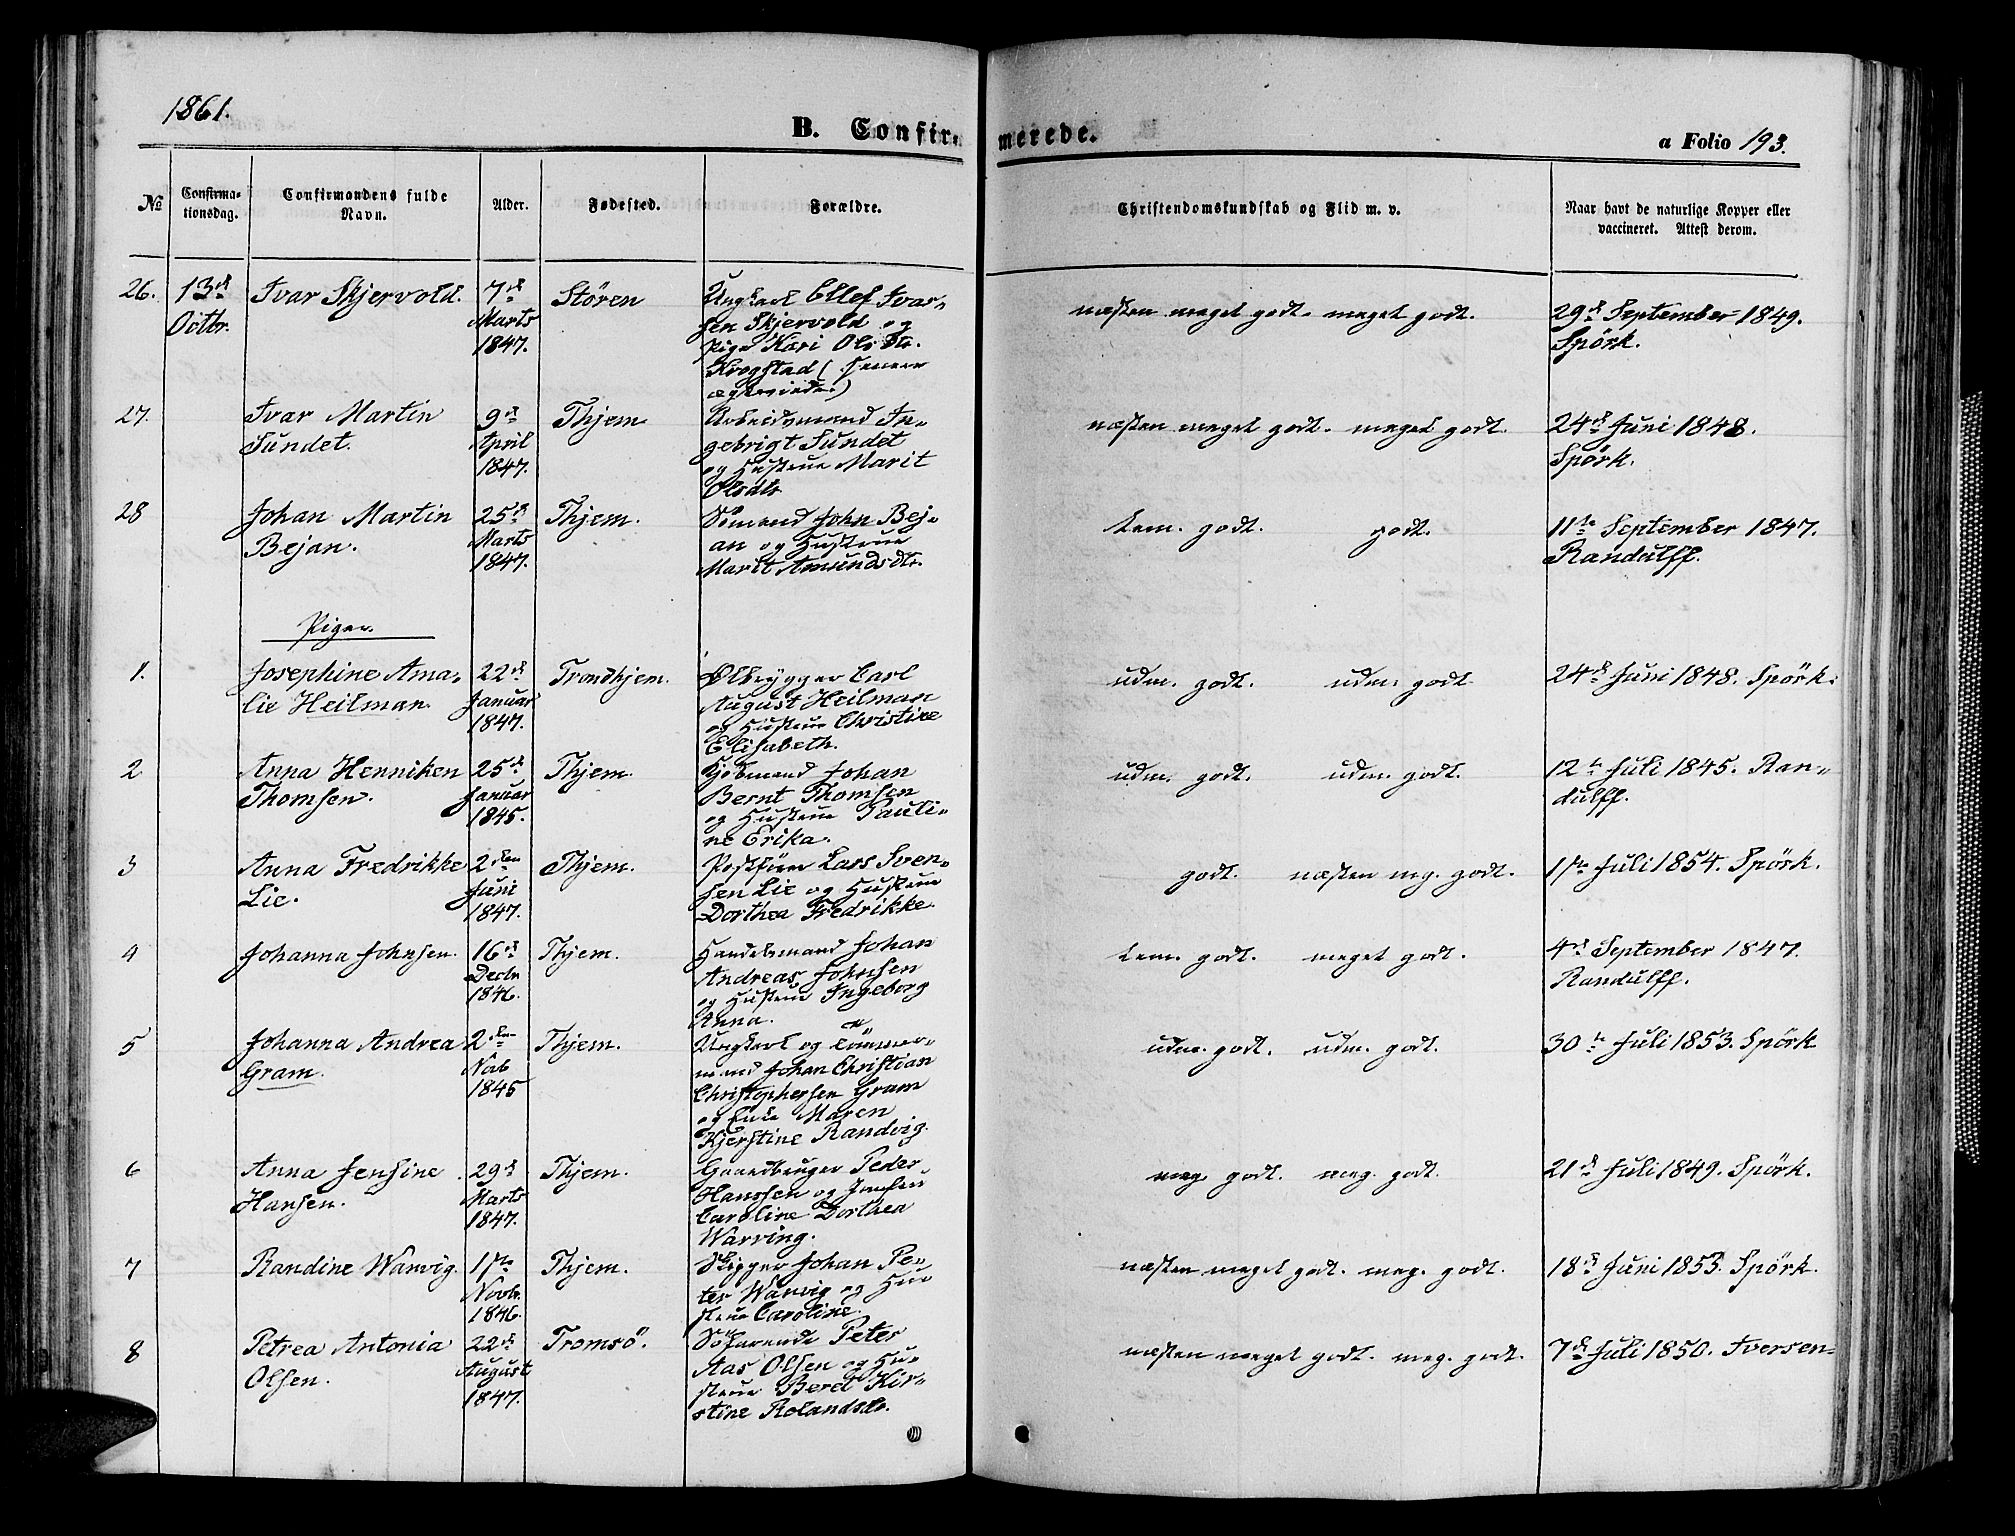 1861.
B. Confirmerede.
a Folio 193.
No
Confirma-
tionsdag.
Confirmandens fulde
Navn.
Alder.
Fødested.
Forældre.
Christendomskundskab og Flid m. v.
Naar havt de naturlige Kopper eller
vaccineret. Attest derom.
26.
13d
Octbr.
Ivar Skjervold.
7d
Marts
1847.
Stören
Ungkarl Ellef Ivar-
sen Skjervold og
Pige Kari Olsdtr.
Krogstad (senere
ægteviede.)
næsten meget godt. meget godt.
29d September 1849.
Spörk.
27.
Ivar Martin
Sundet.
9d
April
1847.
Thjem
Arbeidsmand In-
gebrigt Sundet
og Hustrue Marit
Olsdtr
næsten meget godt. meget godt.
24d Juni 1848.
Spörk.
28
Johan Martin
Bejan.
25d
Marts
1847.
Thjem.
Sömand John Bej-
an og Hustrue
Marit Amundsdtr.
tem. godt. godt.
11te September 1847.
Randulff.
Piger.
1.
Josephine Ama-
lie Heilman.
22d
Januar
1847.
Trondhjem.
Ølbrygger Carl
August Heilman
og Hustrue Christine
Elisabeth.
udm. godt. udm. godt
24d Juni 1848. Spörk.
2
Anna Henniken
Thomsen.
25d
Januar
1845.
Thjem.
Kjöbmand Johan
Bernt Thomsen
og Hustrue Pauli-
ne Erika.
udm. godt. udm. godt.
12te Juli 1845. Ran-
dulff.
3
Anna Fredrikke
Lie.
2den
Juni
1847.
Thjem.
Postförer Lars Sven-
sen Lie og Hustrue
Dorthea Fredrikke.
godt. næsten meg. godt.
1ste Juli 1854. Spörk.
4
Johanna Johnsen.
16d
Decbr
1846.
Thjem.
Handelsmand Johan
Andreas Johnsen
og Hustrue Ingeborg
Anna.
tem. godt. meget godt.
4d September 1847.
Randulff.
5
Johanna Andrea
Gram.
2den
Nov
1845
Thjem.
Ungkarl og Tömmer-
mand Johan Christian
Christophersen Gram
og Enke Maren
Kjerstine Randvig.
udm. godt. udm. godt.
30te Juli 1853. Spörk
6
Anna Jensine
Hansen.
29d
Marts
1847.
Thjem.
Gaardbruger Peder
Hanssen og
Caroline Dorthea
Warving.
meg. godt. meg. godt.
21d Juli 1849. Spörk.
7
Randine Warvig.
1ste
Novbr.
1846.
Thjem.
Skipper Johan Pe-
ter Warvig og Hu-
strue Caroline.
næsten meget godt. meg. godt.
18d Juni 1853. Spörk.
8
Petrea Antonia
Olsen.
22d
August
1847.
Tromsö.
Söfarende Peter
Aas Olsen og Hu-
strue Berel Kir-
stine Rolandsdtr.
næsten meget godt. meg. godt.
7d Juli 1850. Iversen